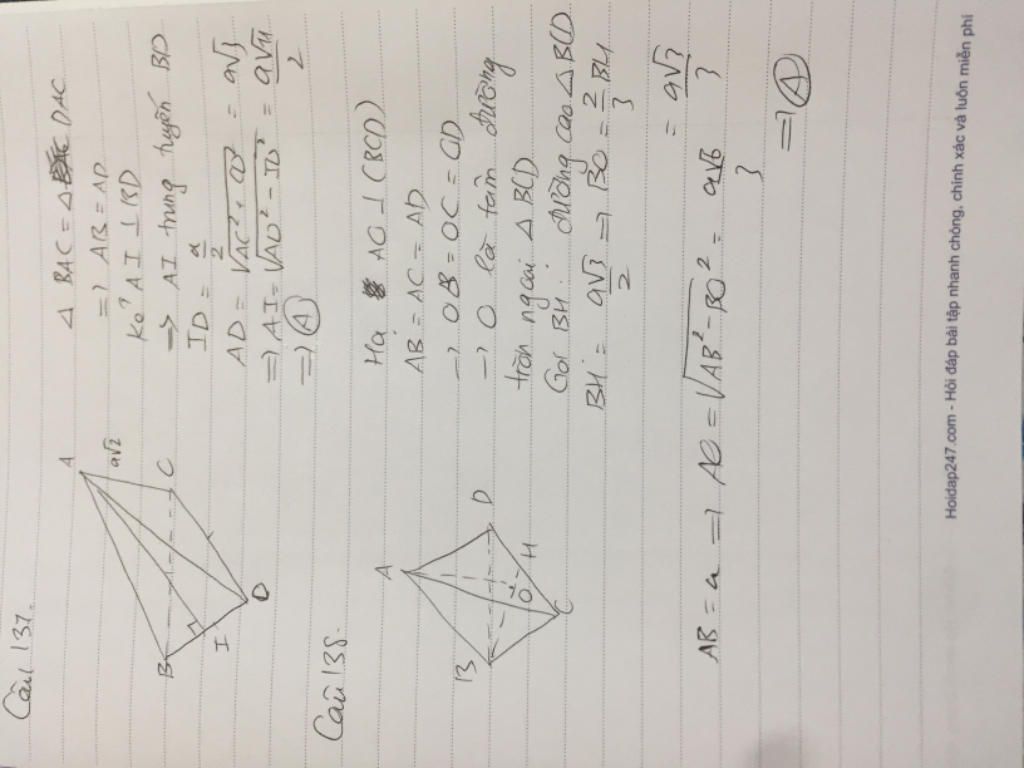 Câu 137.
A
a√2
B
C
I
D
Δ BAC = Δ DAC
=> AB = AD
Kẻ AI ⊥ BD
-> AI trung tuyến BD
ID = a/2
AD = √(AC² + CD²) = a√3
=> AI = √(AD² - ID²) = a√11/2
=> (A)
Câu 138.
A
B
D
O
H
C
Hạ AO ⊥ (BCD)
AB = AC = AD
-> OB = OC = OD
-> O là tâm đường
tròn ngoại Δ BCD
Gọi BH: đường cao Δ BCD
BH = a√3/2 => BO = 2/3 BH
= a√3/3
AB = a => AO = √(AB² - BO²) = a√6/3
=> (A)
Hoidap247.com - Hỏi đáp bài tập nhanh chóng, chính xác và luôn miễn phí